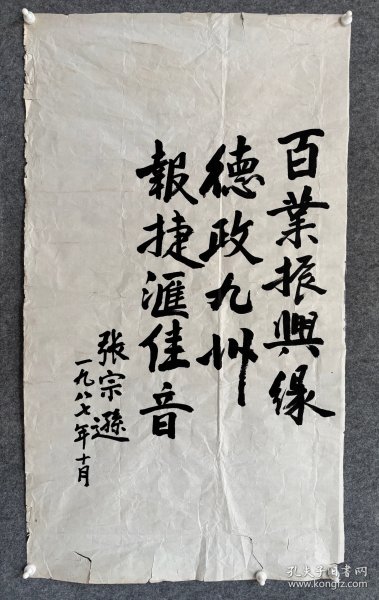 百業振興緣
德政九州
報捷滙佳音
张宗遜
一九八七年十月
孔夫子旧书网
www.kongfz.com